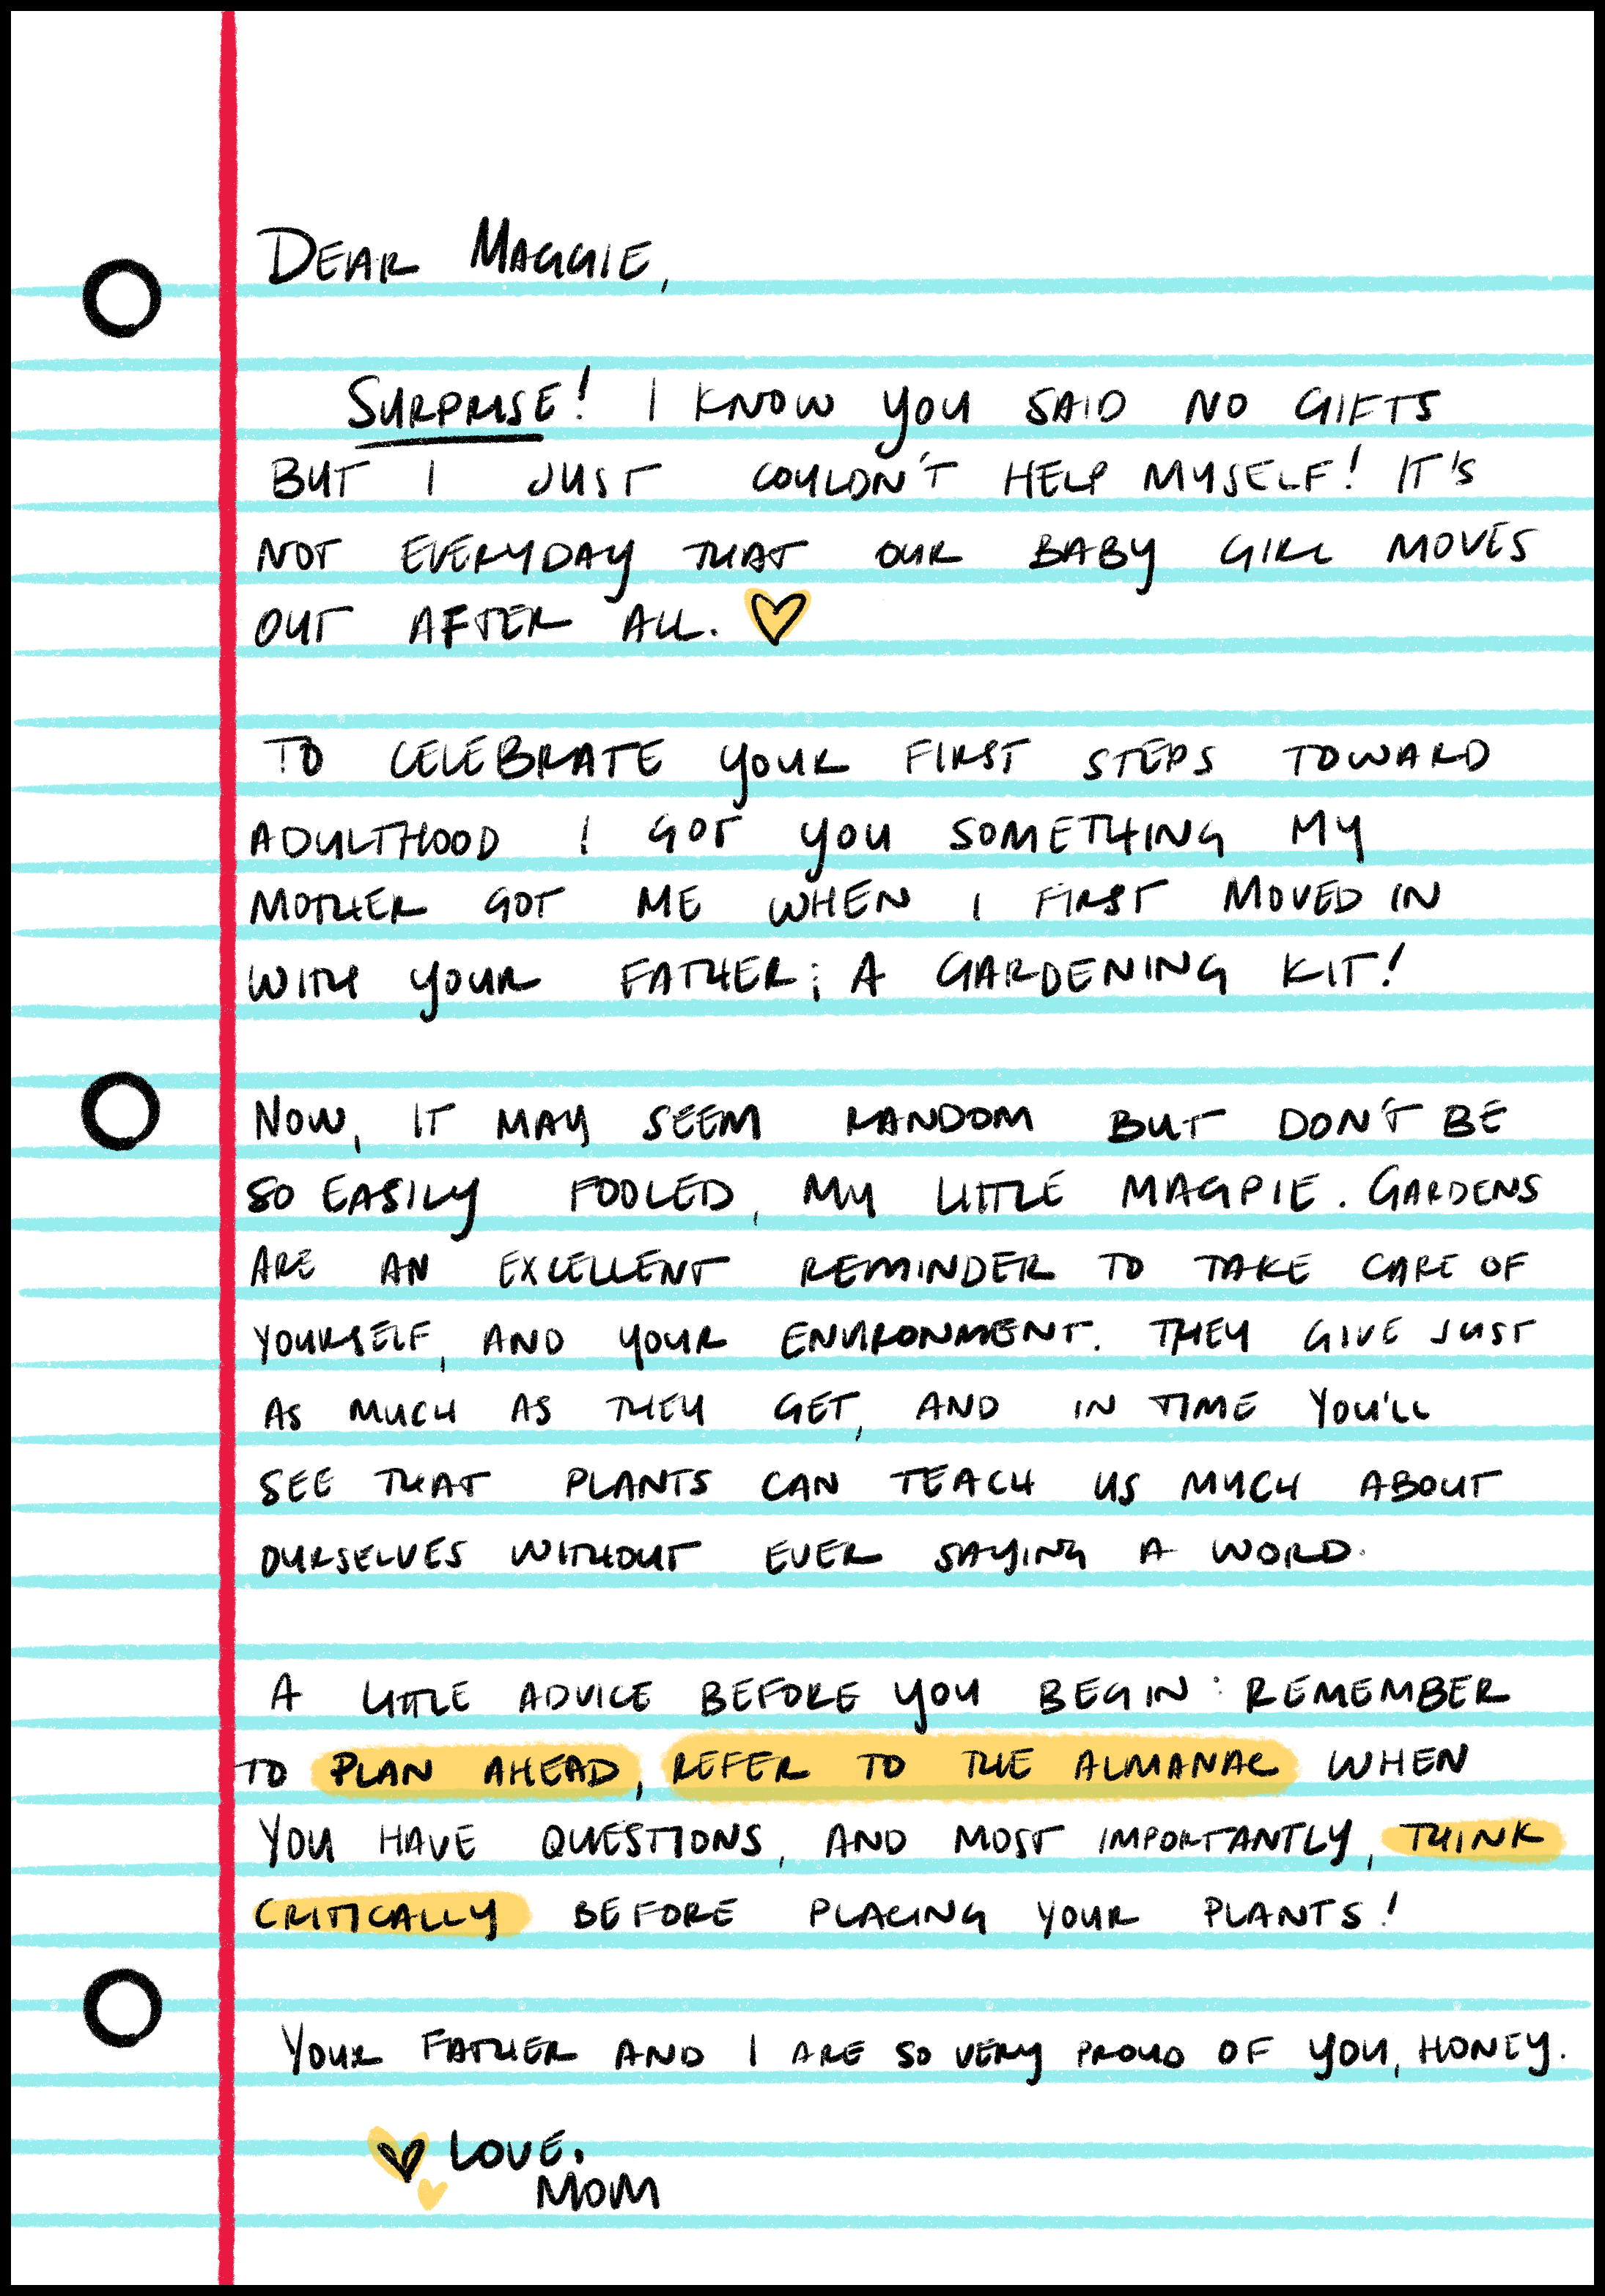 DEAR MAGGIE,
SURPRISE! I KNOW YOU SAID NO GIFTS
BUT I JUST COULDN'T HELP MYSELF! IT'S
NOT EVERYDAY THAT OUR BABY GIRL MOVES
OUT AFTER ALL.
TO CELEBRATE YOUR FIRST STEPS TOWARD
ADULTHOOD I GOT YOU SOMETHING MY
MOTHER GOT ME WHEN I FIRST MOVED IN
WITH YOUR FATHER; A GARDENING KIT!
NOW, IT MAY SEEM RANDOM BUT DON'T BE
SO EASILY FOOLED, MY LITTLE MAGPIE. GARDENS
ARE AN EXCELLENT REMINDER TO TAKE CARE OF
YOURSELF, AND YOUR ENVIRONMENT. THEY GIVE JUST
AS MUCH AS THEY GET, AND IN TIME YOU'LL
SEE THAT PLANTS CAN TEACH US MUCH ABOUT
OURSELVES WITHOUT EVER SAYING A WORD.
A LITTLE ADVICE BEFORE YOU BEGIN: REMEMBER
TO PLAN AHEAD, REFER TO THE ALMANAC WHEN
YOU HAVE QUESTIONS, AND MOST IMPORTANTLY, THINK
CRITICALLY BEFORE PLACING YOUR PLANTS!
YOUR FATHER AND I ARE SO VERY PROUD OF YOU, HONEY.
LOVE,
MOM